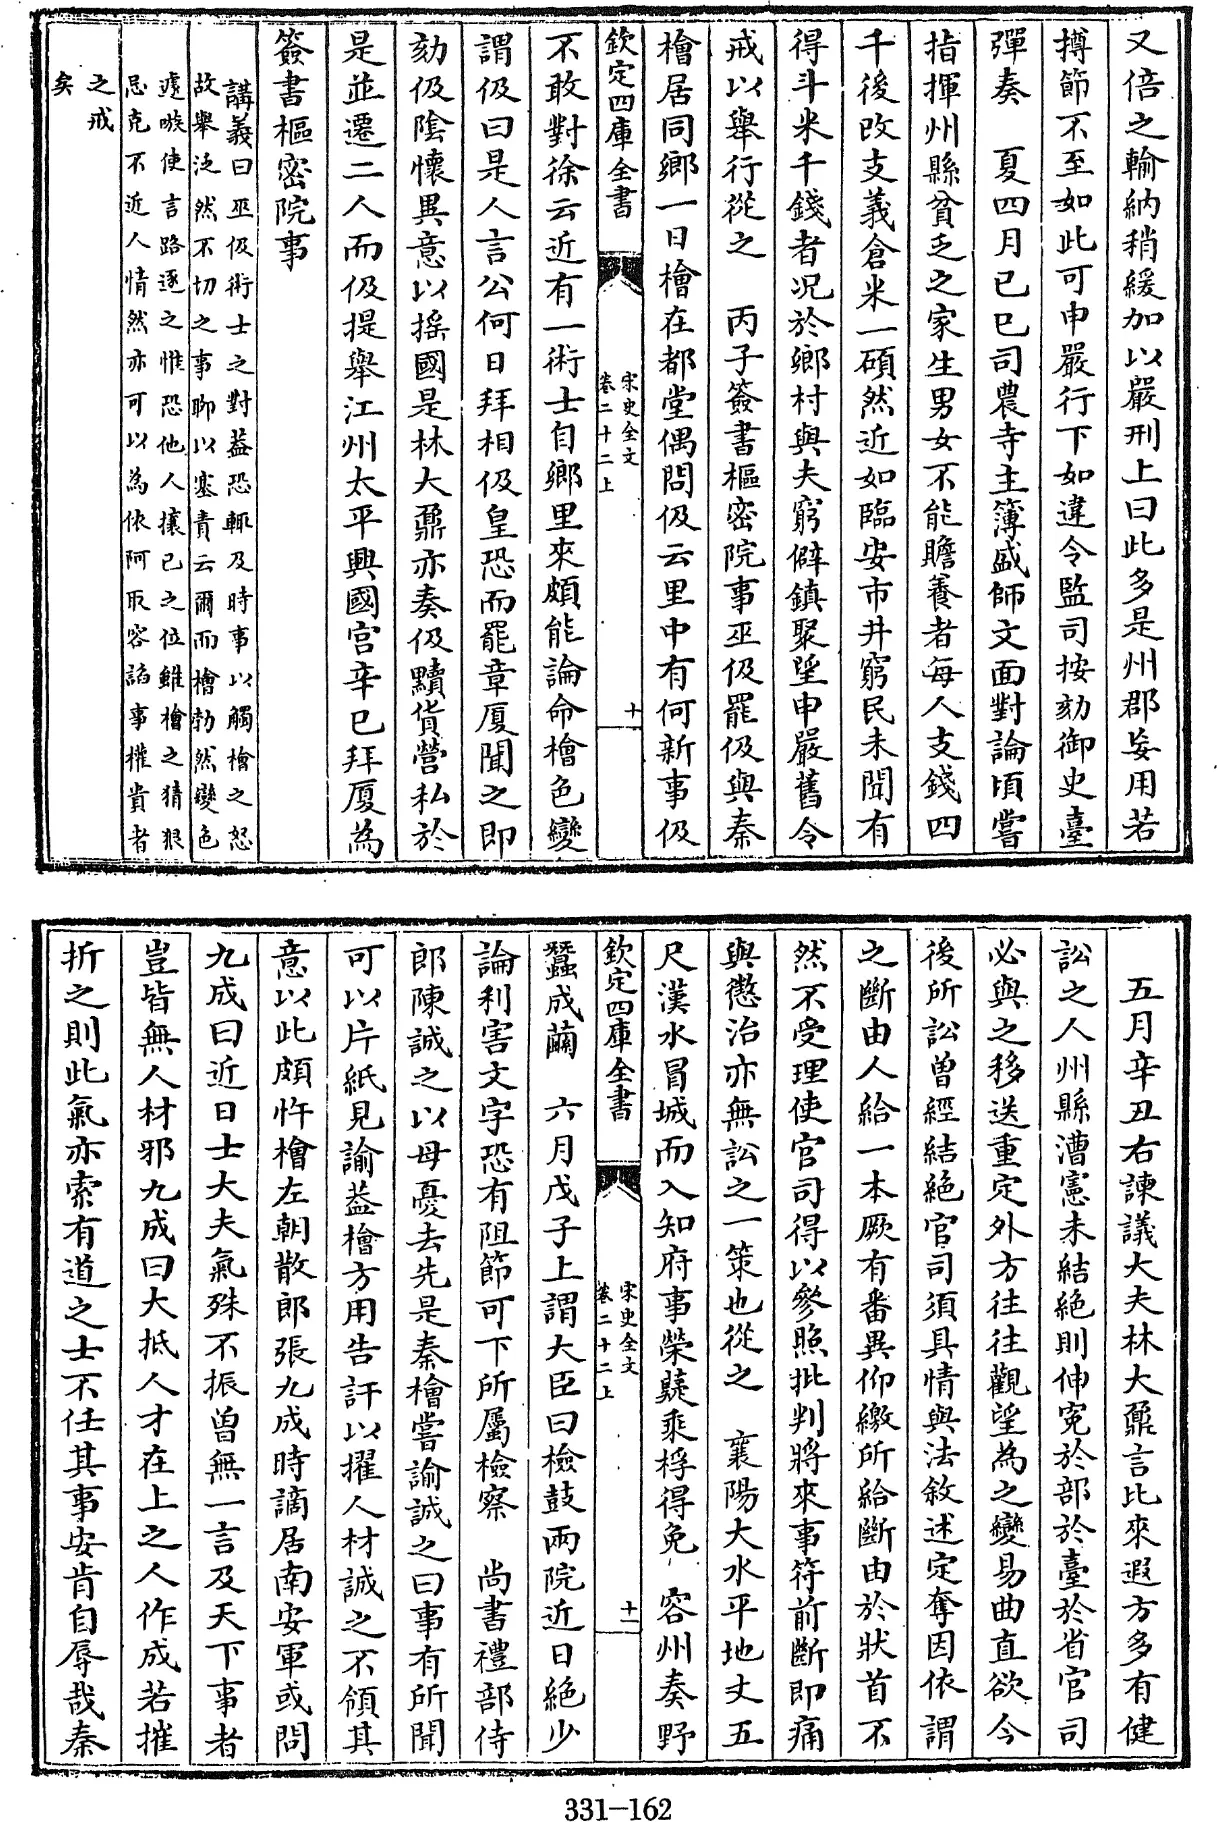 又倍之輸納稍緩加以嚴刑上曰此多是州郡妄用若
撙節不至如此可申嚴行下如違令監司按劾御史臺
彈奏　夏四月已巳司農寺主簿盛師文面對論頃嘗
指揮州縣貧乏之家生男女不能贍養者每人支錢四
千後改支義倉米一碩然近如臨安市井窮民未聞有
得斗米千錢者况於鄉村與夫窮僻鎮聚望申嚴舊令
戒以舉行從之　丙子簽書樞密院事巫伋罷伋與秦
檜居同鄉一日檜在都堂偶問伋云里中有何新事伋
欽定四庫全書
宋史全文
卷二十二上
十
不敢對徐云近有一術士自鄉里來頗能論命檜色變
謂伋曰是人言公何日拜相伋皇恐而罷章厦聞之即
劾伋陰懷異意以揺國是林大鼐亦奏伋黷貨營私於
是並遷二人而伋提舉江州太平興國宫辛巳拜厦為
簽書樞密院事
講義曰巫伋術士之對葢恐輒及時事以觸檜之怒
故舉泛然不切之事聊以塞責云爾而檜勃然變色
遽嗾使言路逐之惟恐他人攘己之位雖檜之猜狠
忌克不近人情然亦可以為依阿取容諂事權貴者
之戒
矣
五月辛丑右諫議大夫林大鼐言比來遐方多有健
訟之人州縣漕憲未結絶則伸寃於部於臺於省官司
必與之移送重定外方往往觀望為之變易曲直欲今
後所訟曽經結絶官司須具情與法敘述定奪因依謂
之斷由人給一本厥有番異仰繳所給斷由於狀首不
然不受理使官司得以參照批判將來事符前斷即痛
與懲治亦無訟之一策也從之　襄陽大水平地丈五
尺漢水冒城而入知府事榮薿乘桴得免　容州奏野
欽定四庫全書
宋史全文
卷二十二上
十一
蠶成繭　六月戊子上謂大臣曰檢鼓兩院近日絶少
論利害文字恐有阻節可下所屬檢察　尚書禮部侍
郎陳誠之以母憂去先是秦檜嘗諭誠之曰事有所聞
可以片紙見諭葢檜方用告訐以擢人材誠之不領其
意以此頗忤檜左朝散郎張九成時謫居南安軍或問
九成曰近日士大夫氣殊不振曽無一言及天下事者
豈皆無人材邪九成曰大抵人才在上之人作成若摧
折之則此氣亦索有道之士不任其事安肯自辱哉秦
331-162